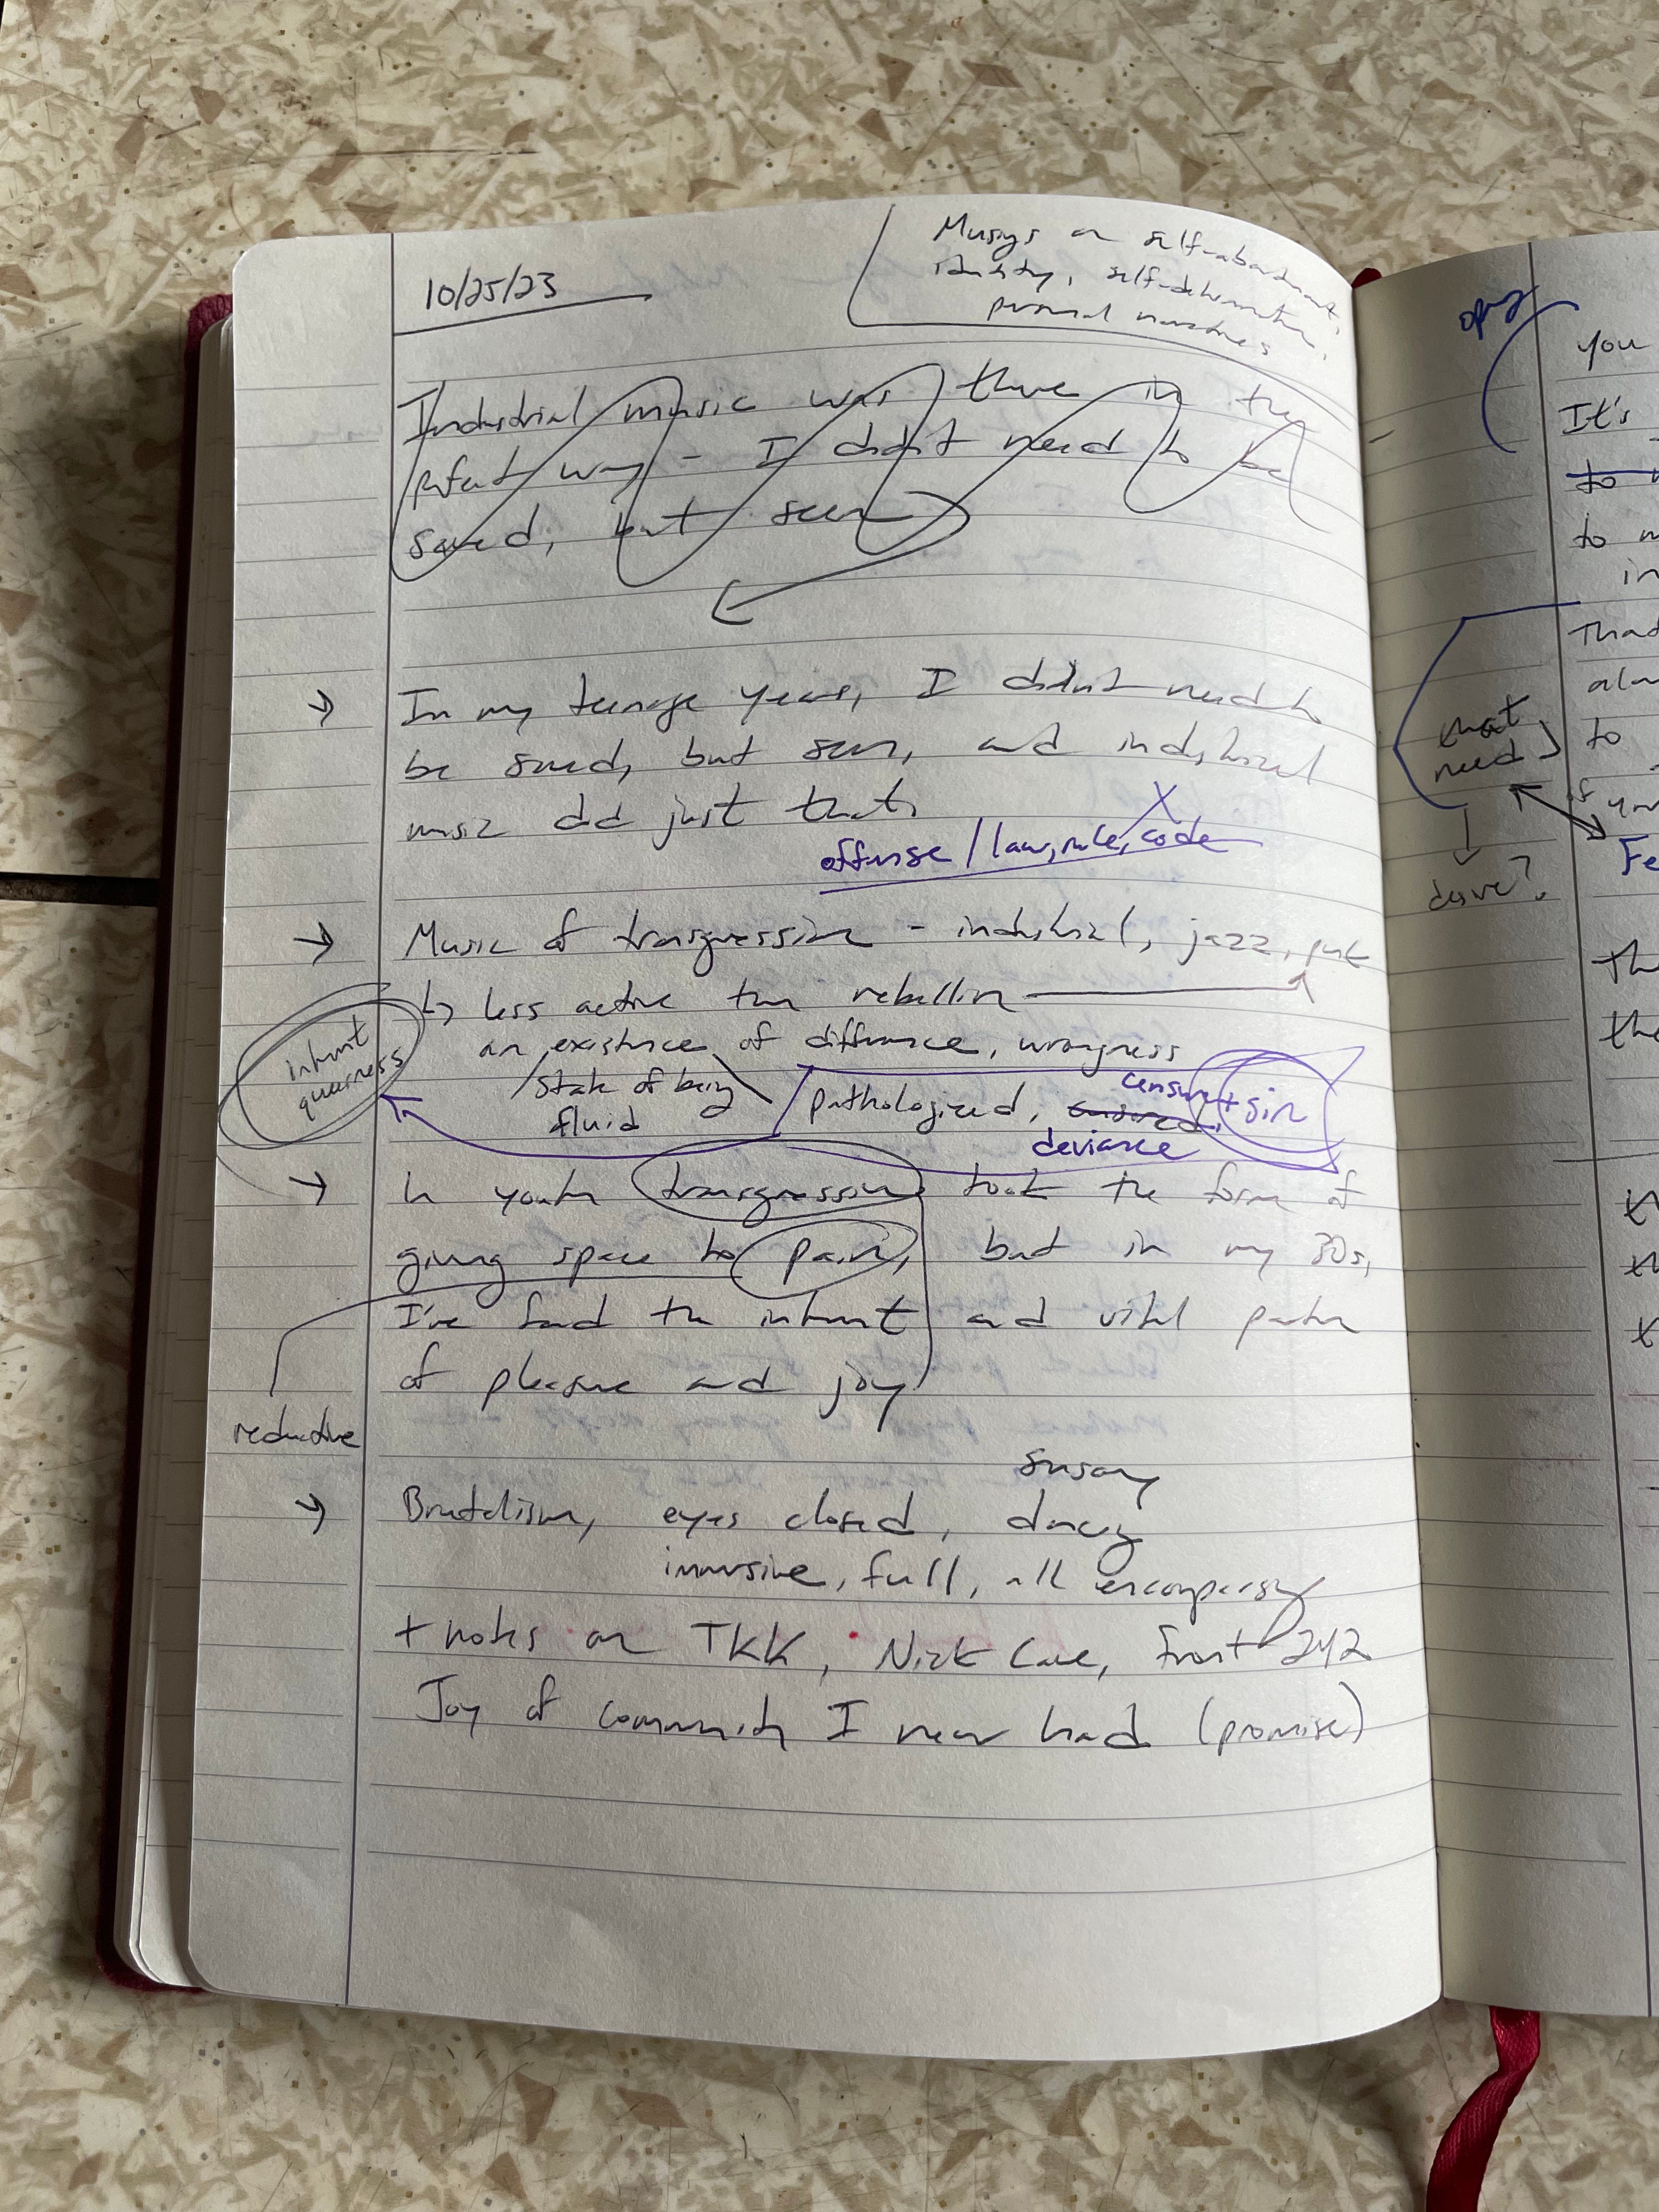 10/25/23
Musings on self-abandonment,
identity, self-determination,
personal narratives
Industrial music was there in the
perfect way - I didn't need to be
saved, but seen
→ In my teenage years, I didn't need to
be saved, but seen, and industrial
music did just that.
offense / law, rule, code
→ Music of transgression - industrial, jazz, punk
↳ less active than rebellion
an existence of difference, wrongness
inherent
queerness
/state of being
fluid
pathologized, censured,
censure + sin
deviance
→ In youth transgression took the form of
giving space to pain, but in my 30s,
I've found the inherent and vital
of pleasure and joy
reductive
sensory
→ Brutalism, eyes closed, dancing
immersive, full, all encompassing
+ notes on TKK, Nick Cave, Front 242
Joy of community I never had (promise)
you
It's
to
to
in
alw
that
need
to
if you
Fe
desire?
the